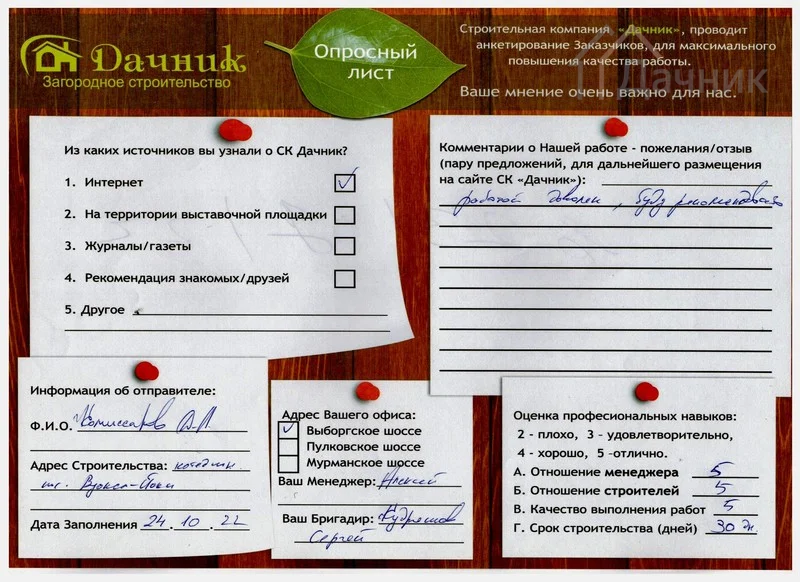 Дачник
Загородное строительство
Опросный
лист
Строительная компания «Дачник», проводит
анкетирование Заказчиков, для максимального
повышения качества работы.
Ваше мнение очень важно для нас.
Дачник
Из каких источников вы узнали о СК Дачник?
1. Интернет
2. На территории выставочной площадки
3. Журналы/газеты
4. Рекомендация знакомых/друзей
5. Другое
Комментарии о Нашей работе - пожелания/отзыв
(пару предложений, для дальнейшего размещения
на сайте СК «Дачник»):
работой доволен, буду рекомендовать
Информация об отправителе:
Ф.И.О. Комиссаров
Адрес Строительства:
Дата Заполнения 24.10.22
Адрес Вашего офиса:
Выборгское шоссе
Пулковское шоссе
Мурманское шоссе
Ваш Менеджер: Алексей
Ваш Бригадир: Кудряшов
Сергей
Оценка професиональных навыков:
2 - плохо, 3 - удовлетворительно,
4 - хорошо, 5 -отлично.
А. Отношение менеджера 5
Б. Отношение строителей 5
В. Качество выполнения работ 5
Г. Срок строительства (дней) 30 дн.